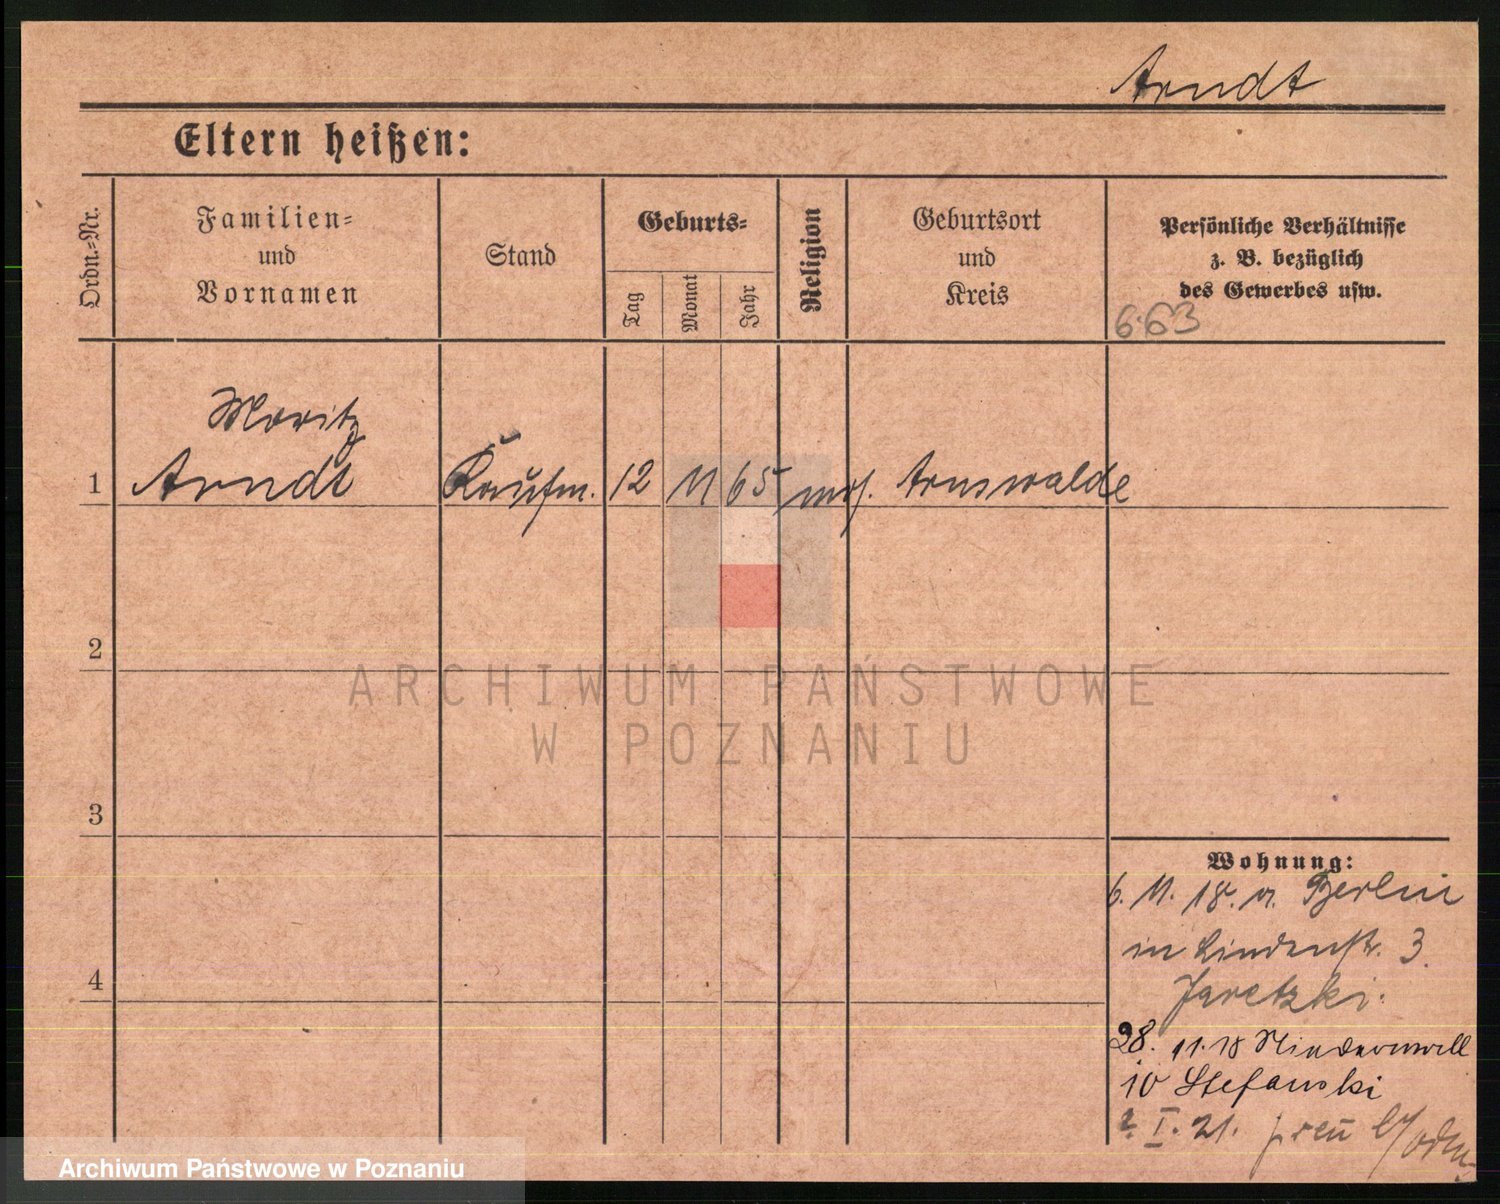 Arndt
Eltern heißen:
Ordn.-Nr.
Familien-
und
Vornamen
Stand
Geburts-
Tag
Monat
Jahr
Religion
Geburtsort
und
Kreis
Persönliche Verhältnisse
z. B. bezüglich
des Gewerbes usw.
663
1
Moritz
Arndt
Kaufm.
12
11
65
mos.
Arnswalde
2
3
4
ARCHIWUM PAŃSTWOWE
W POZNANIU
Wohnung:
6. 11. 18. v. Berlin
in Lindenstr. 3.
Jaretzki.
28. 11. 18
10 Stefanski
2. I. 21.
Archiwum Państwowe w Poznaniu